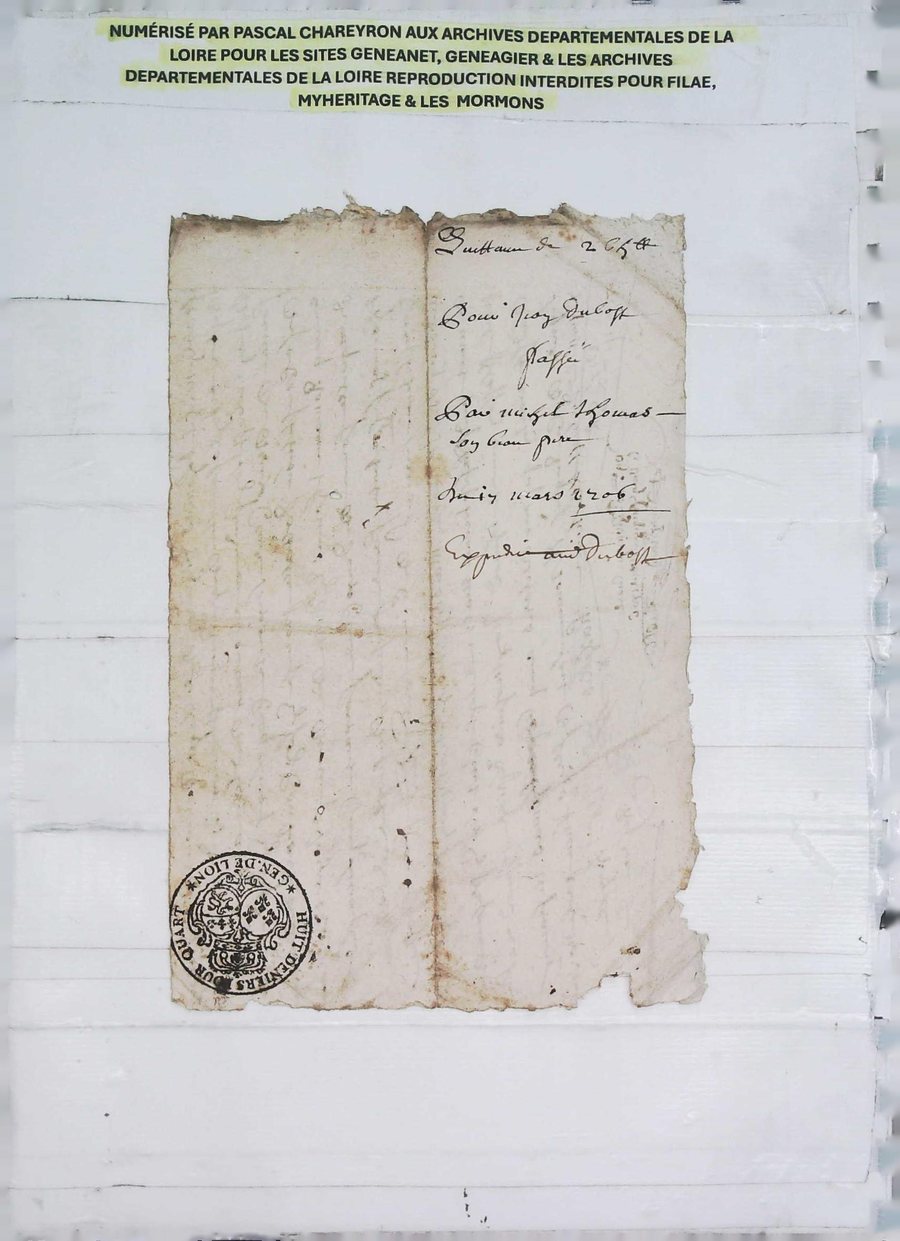 NUMÉRISÉ PAR PASCAL CHAREYRON AUX ARCHIVES DEPARTEMENTALES DE LA
LOIRE POUR LES SITES GENEANET, GENEAGIER & LES ARCHIVES
DEPARTEMENTALES DE LA LOIRE REPRODUCTION INTERDITES POUR FILAE,
MYHERITAGE & LES MORMONS
Quittance de 265 ₶
Pour Jean Dubost
passée
Par michel thomas
son beau pere
mars 1706
Expedié aud Dubost
GEN. DE LION
HUIT DENIERS POUR QUART